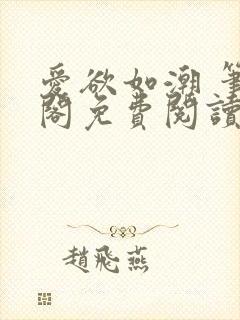 愛欲如潮 筆
閣免費閱讀
趙飛燕